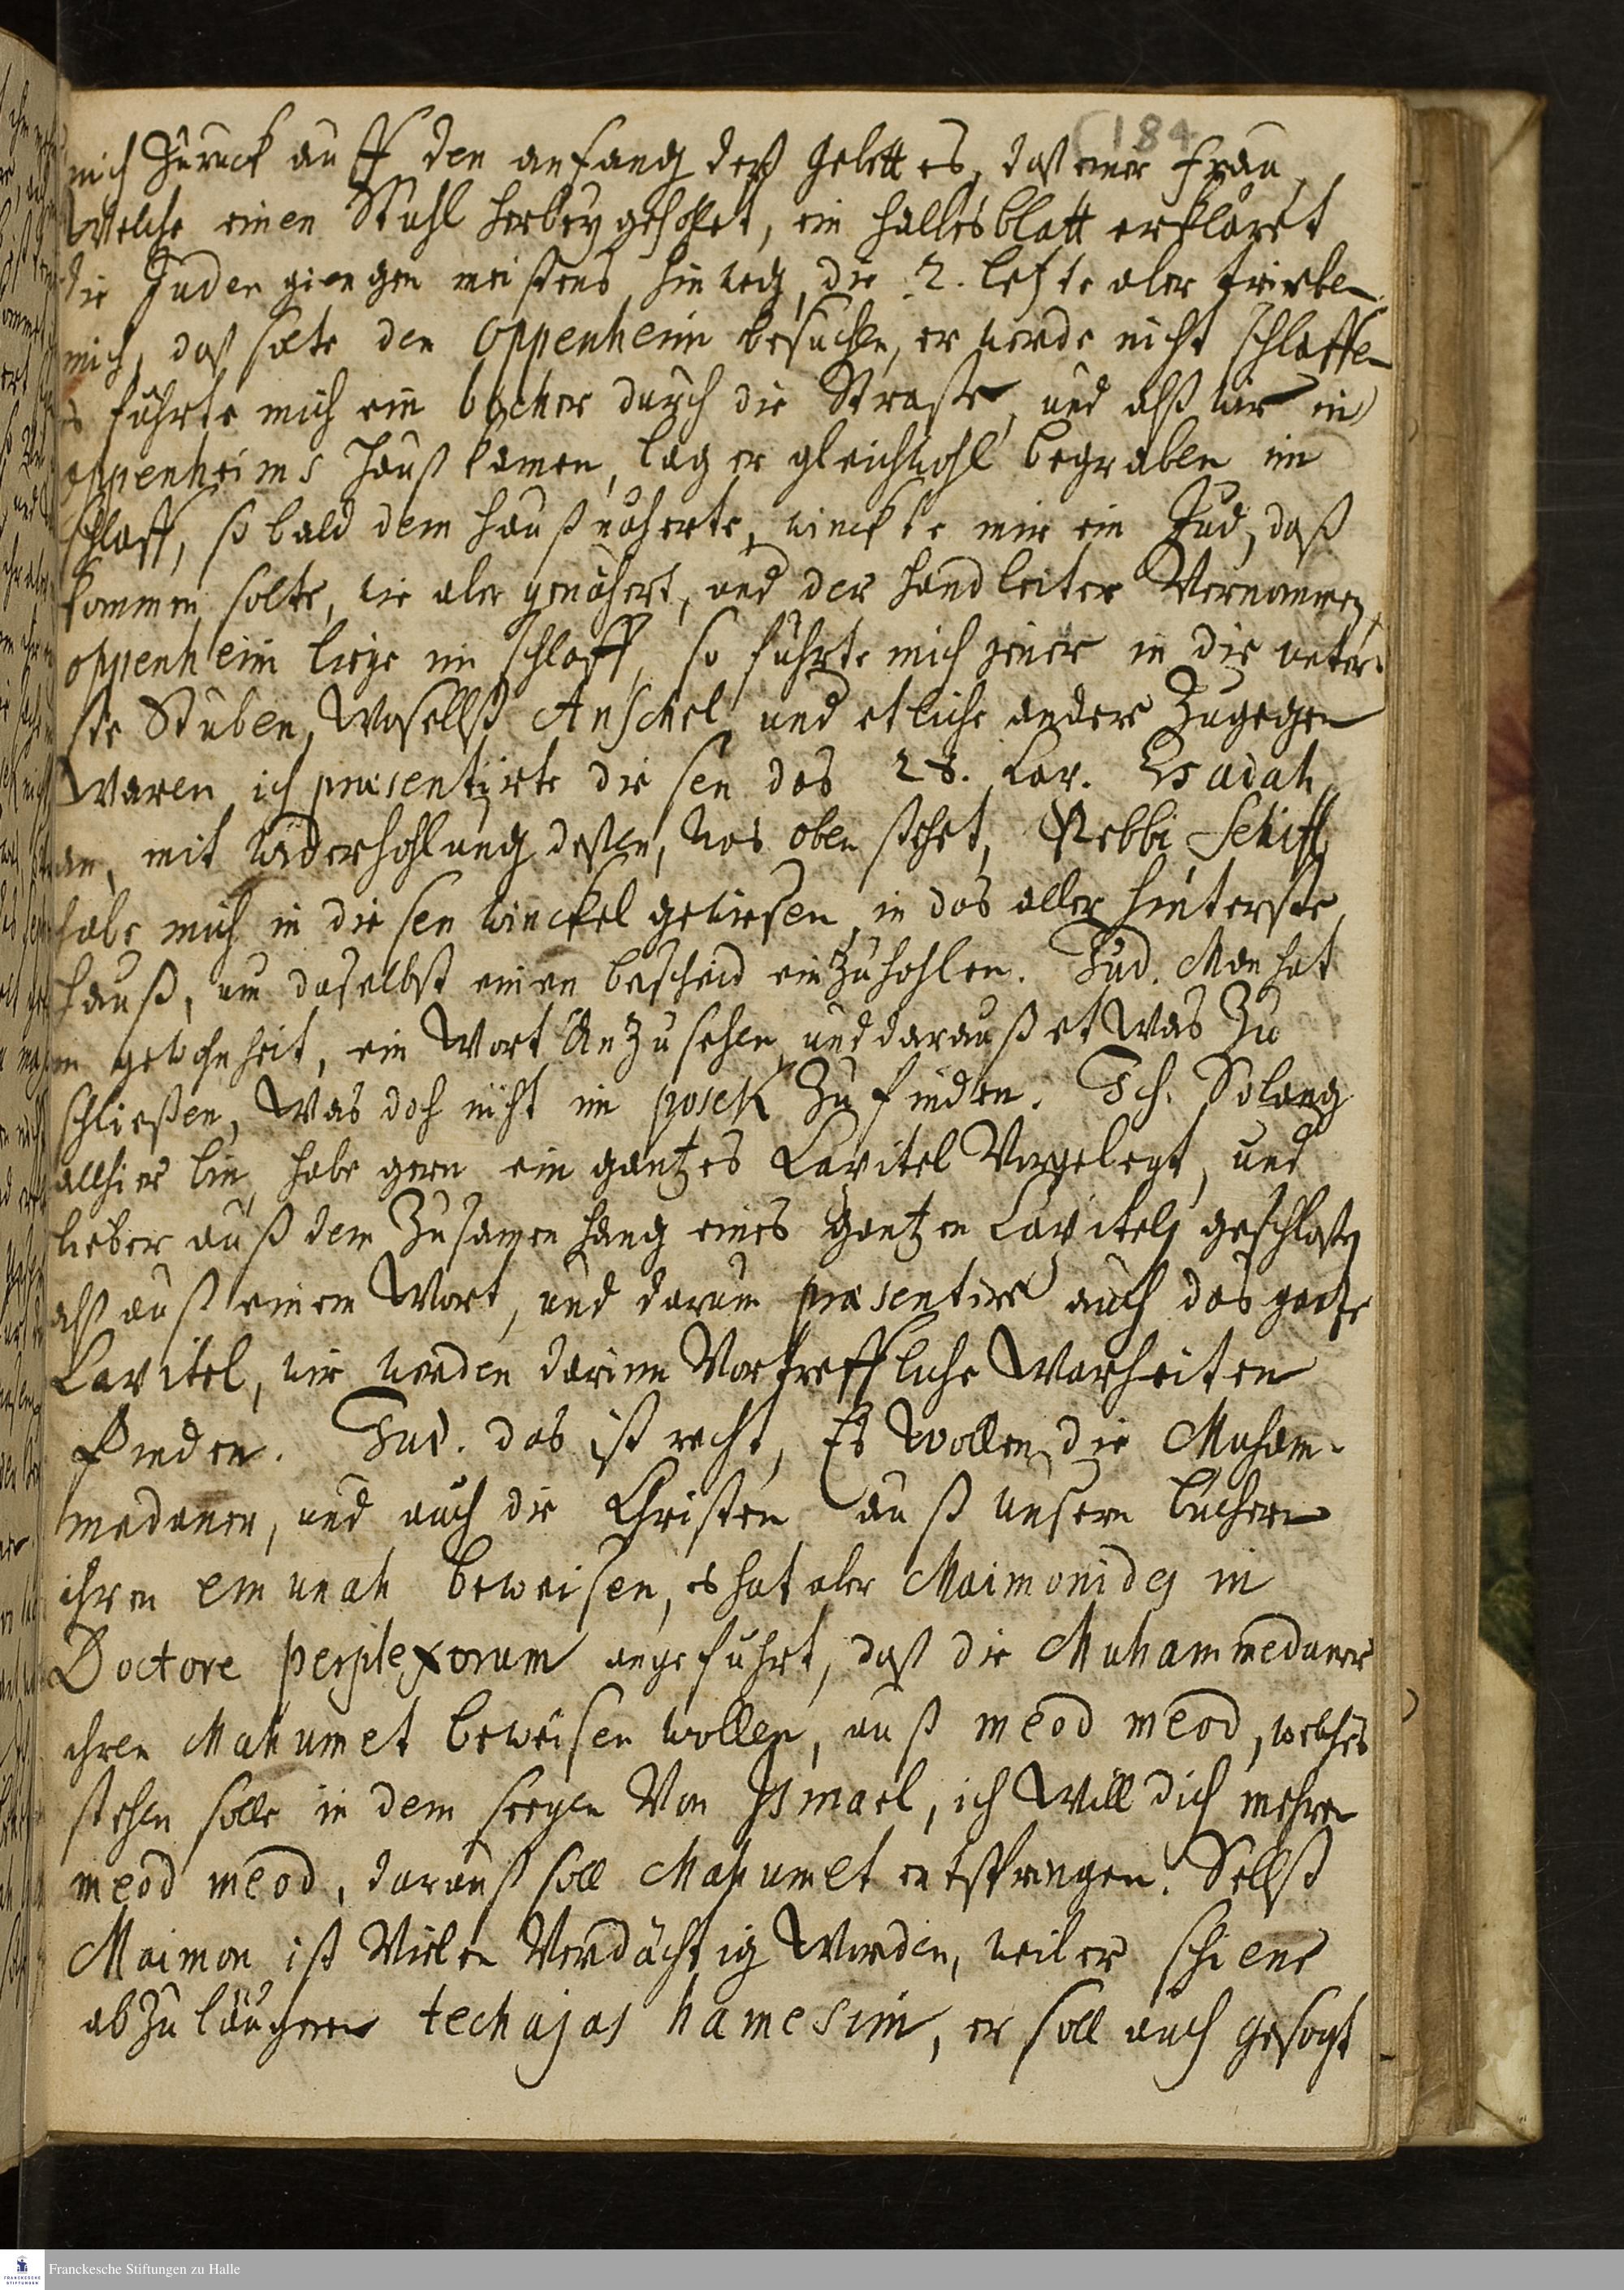 184
mich Zuruck auff den anfang deß gebettes, das einer Frau,
welche einen Stuhl herbey gehohlet, ein hallisblatt erkläret
die Juden giengen meistens hinweg, die 2. letzte aber trieben
mich, daß solte den Oppenheim besuchen, er werde nicht schlaffen
es führte mich ein bocher durch die Straße, und alß wir in
oppenheims Hauß kamen, lag er gleichwohl begraben im
schlaff, so bald dem Hauß näherte, winckte mir ein Jud, daß
kommen solte, wie aber genähert, und der Handleiter Vernommen,
oppenheim liege im schlaff, so führte mich jener in die unter-
ste Stuben, Woselbst Anschel und etliche andere Zugegen
Waren, ich præsentirte diesen das 28. Cap. Esaiah
an, mit widerhohlung deßen, was oben stehet, Rebbi Schiff
habe mich in diesen winckel gewiesen, in das aller hinterste
Hauß, um daselbst einen bescheid einzuhohlen. Jud. Man hat
in gewohnheit, ein Wort Anzusehen und darauß etwas Zu
schließen, Was doch nicht im posek Zu finden. Ich. Solang
allhier bin, habe gern ein gantzes Capitel Vorgelegt, und
lieber auß dem Zusamenhang eines gantzen Capitels geschloßen
alß auß einem Wort, und darum præsentire auch das gantze
Capitel, wir werden darinn Vortreffliche Warheiten
finden. Jud. das ist recht, Es wollen die Muham-
medaner, und auch die Christen auß unsern büchern
ihren emunah beweisen, es hat aber Maimonides in
Doctore perplexorum angeführt, daß die Muhammedaner
ihren Mahumet beweisen wollen, auß meod meod, welches
stehen solle in dem seegen Von Ismael, ich Will dich mehren
meod meod, darauß soll Mahumet entspringen. Selbst
Maimon ist Vielen Verdächtig Worden, weil er schiene
abzuläugnen techajas hamesim, er soll auch gesagt
Franckesche Stiftungen zu Halle